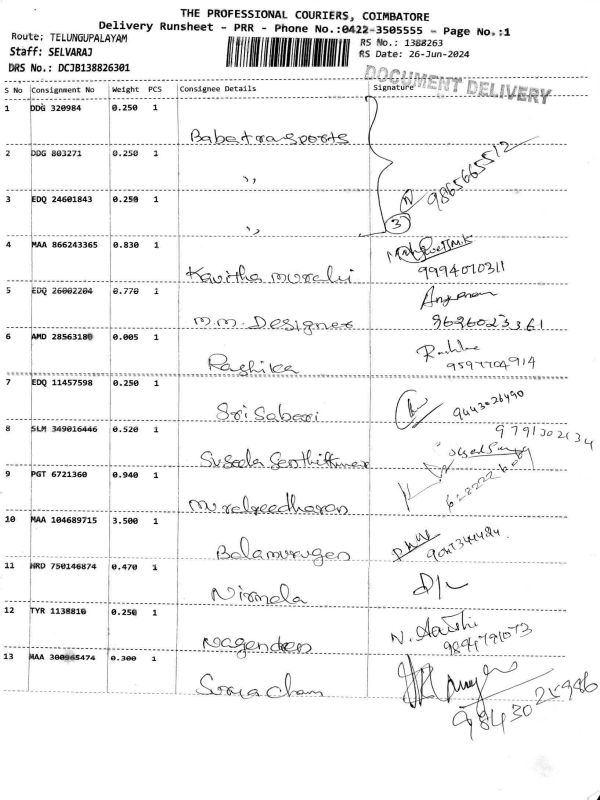 THE PROFESSIONAL COURIERS, COIMBATORE
Delivery Runsheet - PRR - Phone No.:0422-3505555 - Page No.:1
Route: TELUNGUPALAYAM
Staff: SELVARAJ
DRS No.: DCJB138826301
RS No.: 1388263
RS Date: 26-Jun-2024
DOCUMENT DELIVERY
S No Consignment No Weight PCS Consignee Details Signature
1 DDG 320984 0.250 1
Baba transports
2 DDG 803271 0.250 1
,,
3 EDQ 24601843 0.250 1
,,
3
9865665512
4 MAA 866243365 0.830 1
Kavitha murali
9994010311
5 EDQ 26002204 0.770 1
m.m. Designer
9626023361
6 AMD 2856318 0.005 1
Rashika
9597704914
7 EDQ 11457598 0.250 1
Sri Sabari
9443026490
8 SLM 349016446 0.520 1
9791302134
9 PGT 6721360 0.940 1
muraleedharan
10 MAA 104689715 3.500 1
Balamurugan
11 HRD 750146874 0.470 1
Nirmala
12 TYR 1138810 0.250 1
Nagendren
N. Aarthi
9894791073
13 MAA 0.300 1
98430 25986